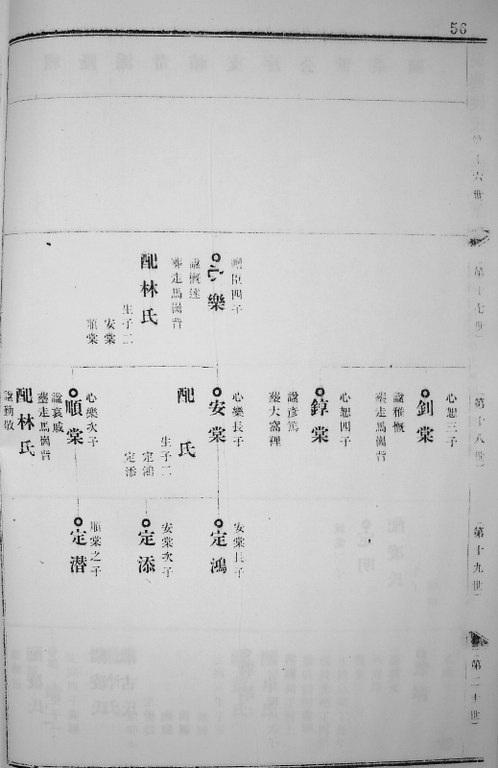 56
第十六世
第十七世
第十八世
第十九世
第二十世
心樂
四子
葬走馬崗背
配林氏
生子二
安棠
順棠
心恕三子
釗棠
謚雅慨
葬走馬崗背
心恕四子
錞棠
謚彦篤
葬大窩裡
心樂長子
安棠
配 氏
生子二
定鴻
定添
心樂次子
順棠
謚哀戚
葬走馬崗背
配林氏
謚勤敬
安棠長子
定鴻
安棠次子
定添
順棠之子
定潜